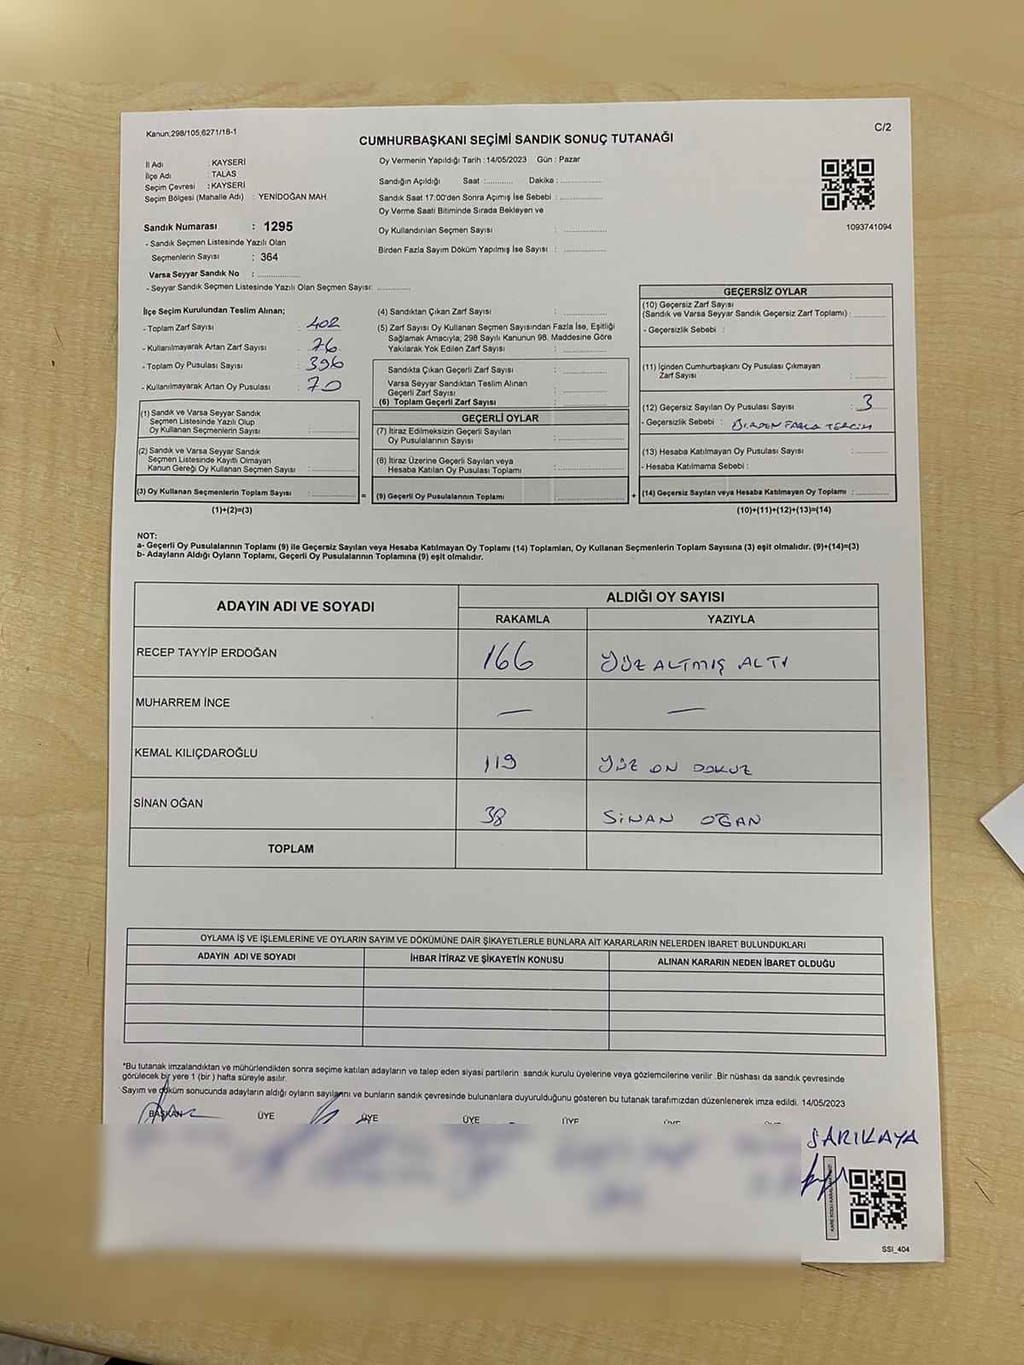 Kanun;298/105;6271/18-1
C/2
CUMHURBAŞKANI SEÇİMİ SANDIK SONUÇ TUTANAĞI
İl Adı : KAYSERİ
İlçe Adı : TALAS
Seçim Çevresi : KAYSERİ
Seçim Bölgesi (Mahalle Adı) : YENİDOĞAN MAH
Sandık Numarası : 1295
- Sandık Seçmen Listesinde Yazılı Olan
Seçmenlerin Sayısı : 364
Varsa Seyyar Sandık No : ............
- Seyyar Sandık Seçmen Listesinde Yazılı Olan Seçmen Sayısı: ............
Oy Vermenin Yapıldığı Tarih : 14/05/2023 Gün : Pazar
Sandığın Açıldığı Saat :............ Dakika : ............
Sandık Saat 17:00'den Sonra Açılmış İse Sebebi : ............
Oy Verme Saati Bitiminde Sırada Bekleyen ve
Oy Kullandırılan Seçmen Sayısı : ............
Birden Fazla Sayım Döküm Yapılmış İse Sayısı : ............
1093741094
İlçe Seçim Kurulundan Teslim Alınan;
- Toplam Zarf Sayısı : 402
- Kullanılmayarak Artan Zarf Sayısı : 76
- Toplam Oy Pusulası Sayısı : 396
- Kullanılmayarak Artan Oy Pusulası : 70
(1) Sandık ve Varsa Seyyar Sandık
Seçmen Listesinde Yazılı Olup
Oy Kullanan Seçmenlerin Sayısı : ............
(2) Sandık ve Varsa Seyyar Sandık
Seçmen Listesinde Kayıtlı Olmayan
Kanun Gereği Oy Kullanan Seçmen Sayısı : ............
(3) Oy Kullanan Seçmenlerin Toplam Sayısı : ............
(1)+(2)=(3)
(4) Sandıktan Çıkan Zarf Sayısı : ............
(5) Zarf Sayısı Oy Kullanan Seçmen Sayısından Fazla İse, Eşitliği
Sağlamak Amacıyla; 298 Sayılı Kanunun 98. Maddesine Göre
Yakılarak Yok Edilen Zarf Sayısı : ............
Sandıkta Çıkan Geçerli Zarf Sayısı : ............
Varsa Seyyar Sandıktan Teslim Alınan
Geçerli Zarf Sayısı : ............
(6) Toplam Geçerli Zarf Sayısı : ............
GEÇERLİ OYLAR
(7) İtiraz Edilmeksizin Geçerli Sayılan
Oy Pusulalarının Sayısı : ............
(8) İtiraz Üzerine Geçerli Sayılan veya
Hesaba Katılan Oy Pusulası Toplamı : ............
= (9) Geçerli Oy Pusulalarının Toplamı : ............
GEÇERSİZ OYLAR
(10) Geçersiz Zarf Sayısı
(Sandık ve Varsa Seyyar Sandık Geçersiz Zarf Toplamı) : ............
- Geçersizlik Sebebi :
(11) İçinden Cumhurbaşkanı Oy Pusulası Çıkmayan
Zarf Sayısı : ............
(12) Geçersiz Sayılan Oy Pusulası Sayısı : 3
- Geçersizlik Sebebi : BİRDEN FAZLA TERCİH
(13) Hesaba Katılmayan Oy Pusulası Sayısı : ............
- Hesaba Katılmama Sebebi :
+ (14) Geçersiz Sayılan veya Hesaba Katılmayan Oy Toplamı : ............
(10)+(11)+(12)+(13)=(14)
NOT:
a- Geçerli Oy Pusulalarının Toplamı (9) ile Geçersiz Sayılan veya Hesaba Katılmayan Oy Toplamı (14) Toplamları, Oy Kullanan Seçmenlerin Toplam Sayısına (3) eşit olmalıdır. (9)+(14)=(3)
b- Adayların Aldığı Oyların Toplamı, Geçerli Oy Pusulalarının Toplamına (9) eşit olmalıdır.
ADAYIN ADI VE SOYADI ALDIĞI OY SAYISI
RAKAMLA YAZIYLA
RECEP TAYYİP ERDOĞAN 166 YÜZ ALTMIŞ ALTI
MUHARREM İNCE — —
KEMAL KILIÇDAROĞLU 119 YÜZ ON DOKUZ
SİNAN OĞAN 38 SİNAN OĞAN
TOPLAM
OYLAMA İŞ VE İŞLEMLERİNE VE OYLARIN SAYIM VE DÖKÜMÜNE DAİR ŞİKAYETLERLE BUNLARA AİT KARARLARIN NELERDEN İBARET BULUNDUKLARI
ADAYIN ADI VE SOYADI İHBAR İTİRAZ VE ŞİKAYETİN KONUSU ALINAN KARARIN NEDEN İBARET OLDUĞU
*Bu tutanak imzalandıktan ve mühürlendikten sonra seçime katılan adayların ve talep eden siyasi partilerin sandık kurulu üyelerine veya gözlemcilerine verilir. Bir nüshası da sandık çevresinde
görülecek bir yere 1 (bir) hafta süreyle asılır.
Sayım ve döküm sonucunda adayların aldığı oyların sayılarını ve bunların sandık çevresinde bulunanlara duyurulduğunu gösteren bu tutanak tarafımızdan düzenlenerek imza edildi. 14/05/2023
BAŞKAN ÜYE ÜYE ÜYE ÜYE ÜYE
SARIKAYA
SSI_404